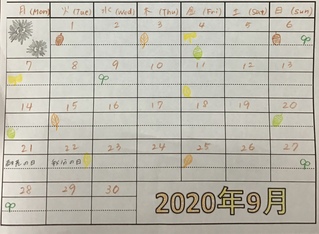 月(Mon) 火(Tue) 水(Wed) 木(Thu) 金(Fri) 土(Sat) 日(Sun)
1 2 3 4 5 6
7 8 9 10 11 12 13
14 15 16 17 18 19 20
21 22 23 24 25 26 27
敬老の日 秋分の日
28 29 30
2020年9月